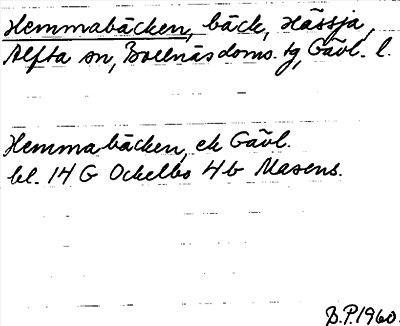 Hemmabäcken, bäck, Hässja,
Alfta sn, Bollnäs doms. tg, Gävl. l.
Hemmabäcken, ek Gävl.
bl. 14 G Ockelbo 4 b Masens.
B.P. 1960.